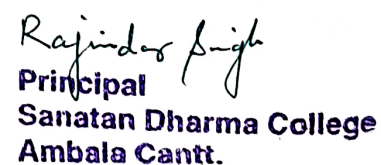 Rajindar Singh
Principal
Sanatan Dharma College
Ambala Cantt.